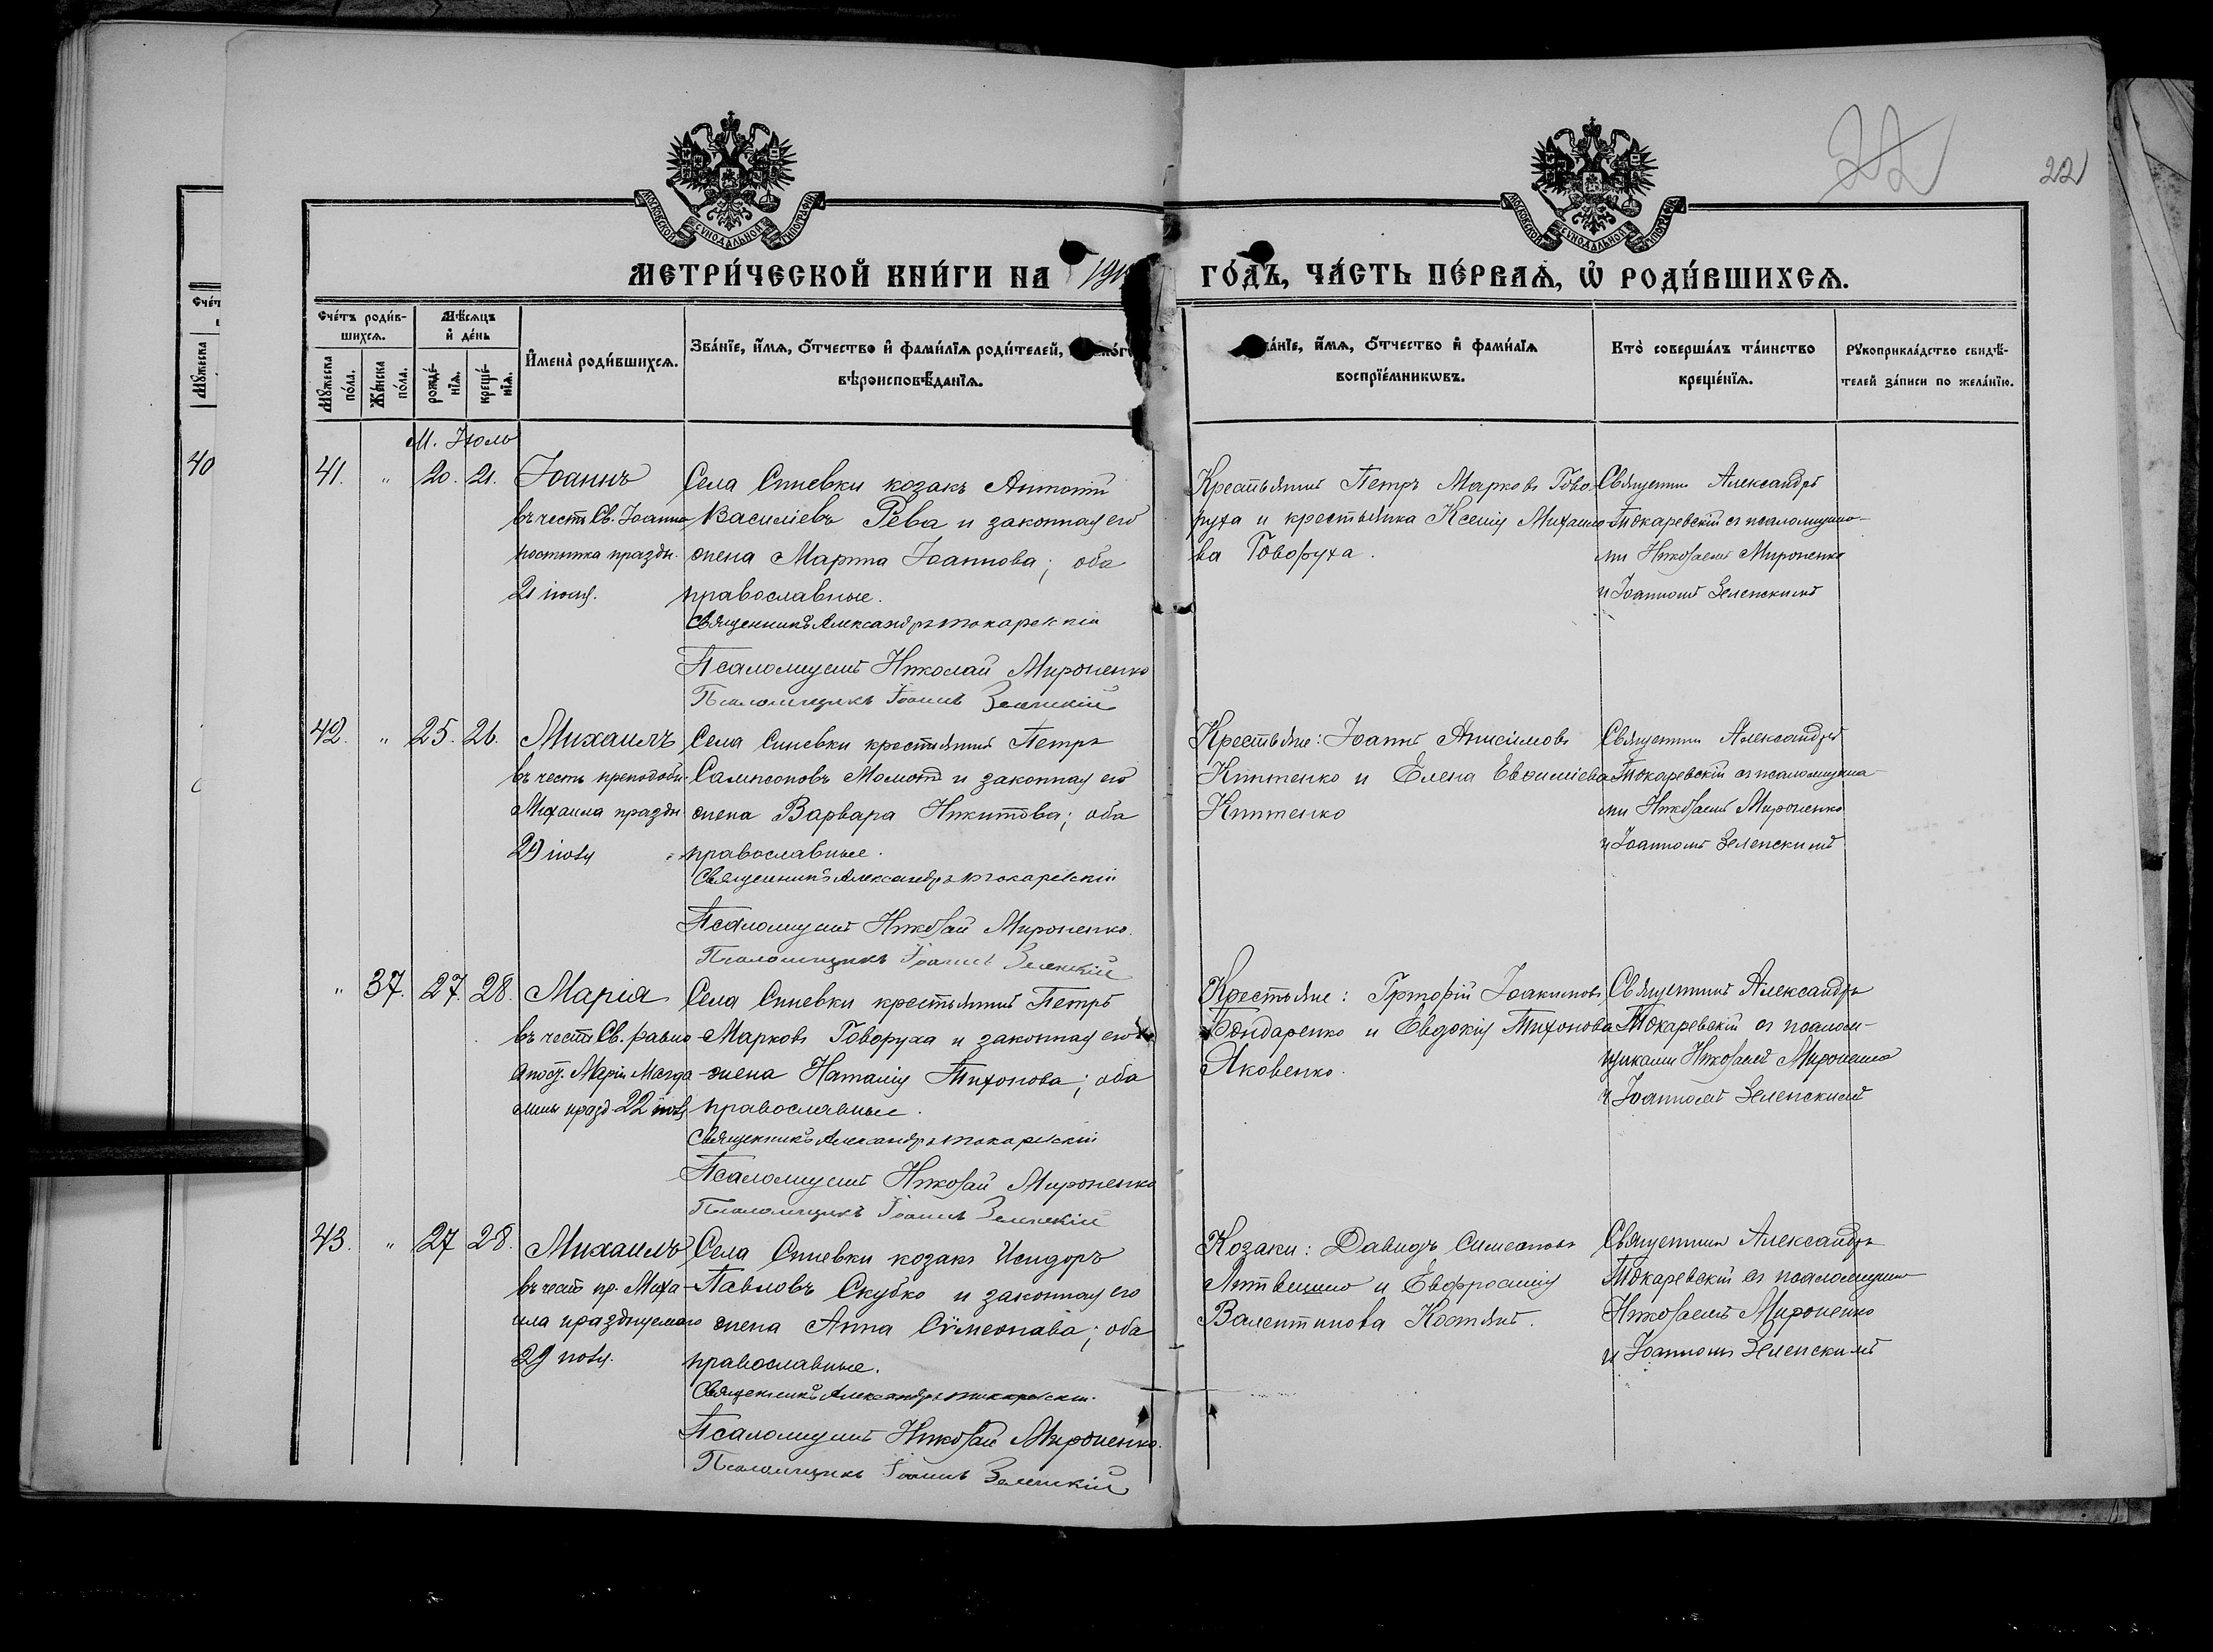 22
22
МОСКОВСКОЙ СѴНОДАЛЬНОЙ ТИПОГРАФІИ
МОСКОВСКОЙ СѴНОДАЛЬНОЙ ТИПОГРАФІИ
МЕТРИ́ЧЕСКОЙ КНИ́ГИ НА
ГО́ДЪ, ЧА́СТЬ ПЕ́РВАѦ, Ѡ҆ РОДИ́ВШИХСѦ.
Сче́тъ роди́в-
шихсѧ.
Мꙋжеска по́ла.
Же́нска по́ла.
Мѣ́сѧцъ и҆ де́нь
рожде́-нїѧ.
креще́-нїѧ.
И҆мена̀ роди́вшихсѧ.
Зва́нїе, и҆́мѧ, ѻ҆́тчество и҆ фами́лїѧ роди́телей,
вѣроисповѣ́данїѧ.
и҆́мѧ, ѻ҆́тчество и҆ фами́лїѧ
воспрїе́мникѡвъ.
Кто̀ соверша́лъ та́инство
креще́нїѧ.
Рꙋкоприкла́дство свидѣ́-
телей за́писи по жела́нїю.
40
М. Іюль
41. " 20. 21. Іоаннъ
въ честь Св. Іоанна
постника праздн.
21 іюля.
Села Синевки козакъ Антоній
Василіевъ Рева и законная его
жена Марта Іоаннова; оба
православные.
Священникъ Александръ Токаревскій
Псаломщикъ Николай Мироненко
Псаломщикъ Іоаннъ Зеленскій
Крестьянинъ Петръ Марковъ Гово-
руха и крестьянка Ксенія Михаило-
ва Говоруха.
Священникъ Александръ
Токаревскій съ псаломщика-
ми Николаемъ Мироненко
и Іоанномъ Зеленскимъ
42. " 25. 26. Михаилъ
въ честь преподобн.
Михаила праздн.
29 іюля
Села Синевки крестьянинъ Петръ
Сампсоновъ Момотъ и законная его
жена Варвара Никитова; оба
православные.
Священникъ Александръ Токаревскій
Псаломщикъ Николай Мироненко.
Псаломщикъ Іоаннъ Зеленскій
Крестьяне: Іоаннъ Анисимовъ
Книтенко и Елена Евѳиміева
Книтенко
Священникъ Александръ
Токаревскій съ псаломщика-
ми Николаемъ Мироненко
и Іоанномъ Зеленскимъ
" 37. 27. 28. Марія
въ честь Св. равно
апост. Маріи Магда-
лины празд. 22 іюля
Села Синевки крестьянинъ Петръ
Марковъ Говоруха и законная его
жена Наталія Тихонова; оба
православные.
Священникъ Александръ Токаревскій
Псаломщикъ Николай Мироненко
Псаломщикъ Іоаннъ Зеленскій
Крестьяне: Григорій Іоакимовъ
Бондаренко и Евдокія Тихонова
Яковенко.
Священникъ Александръ
Токаревскій съ псалом-
щиками Николаемъ Мироненко
и Іоанномъ Зеленскимъ
43. " 27 28. Михаилъ
въ честь пр. Миха-
ила празднуемаго
29 іюля.
Села Синевки козакъ Исидоръ
Павловъ Скубко и законная его
жена Анна Сѵмеонава; оба
православные.
Священникъ Александръ Токаревскій.
Псаломщикъ Николай Мироненко.
Псаломщикъ Іоаннъ Зеленскій
Козаки: Давидъ Симеоновъ
Литвиненко и Евфросинія
Валентинова Костянъ.
Священникъ Александръ
Токаревскій съ псаломщик
Николаемъ Мироненко
и Іоанномъ Зеленскимъ